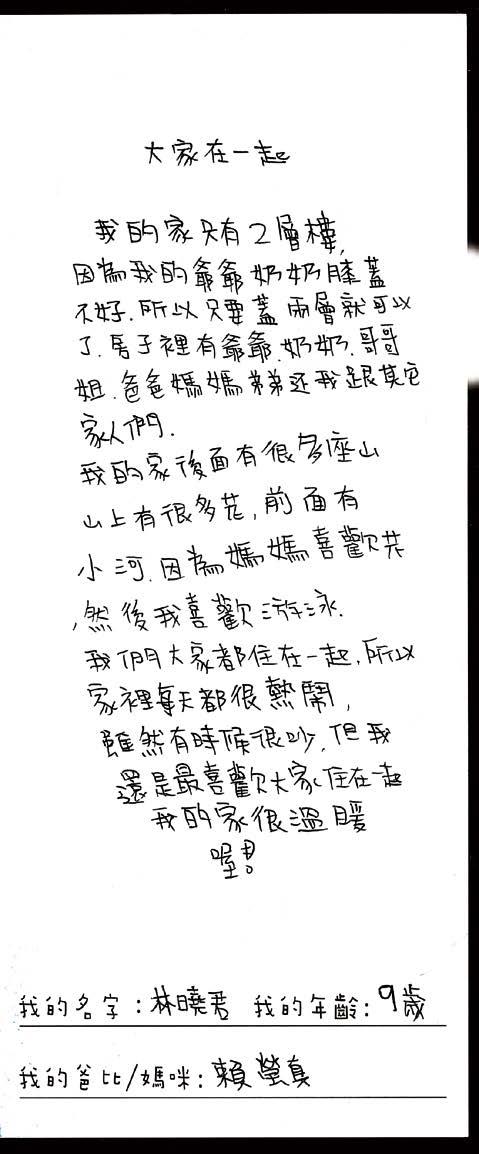 大家在一起
我的家只有2層樓,
因為我的爺爺奶奶膝蓋
不好.所以只要蓋兩層就可以
了.房子裡有爺爺.奶奶.哥哥
姐.爸爸媽媽弟弟还我跟其它
家人們.
我的家後面有很多座山
山上有很多花,前面有
小河.因為媽媽喜歡花
,然後我喜歡游泳.
我們大家都住在一起.所以
家裡每天都很熱鬧,
雖然有時候很吵,但我
還是最喜歡大家住在一起
我的家很溫暖
喔!
我的名字:林曉君 我的年齡:9歲
我的爸比/媽咪:賴瑩真